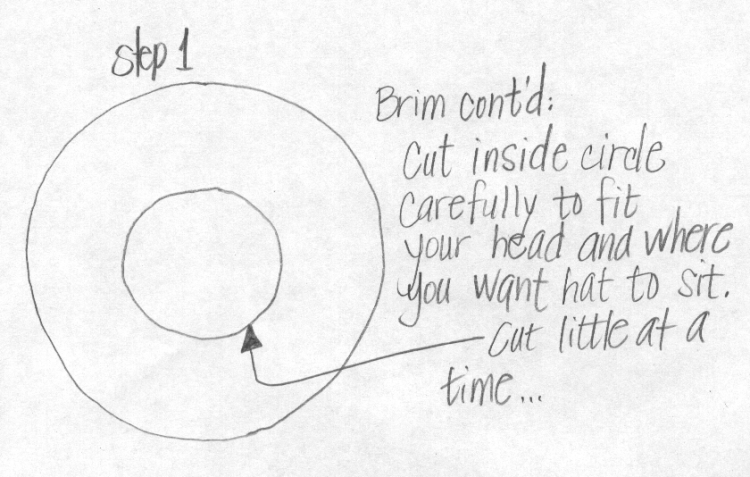 step 1
Brim cont'd:
Cut inside circle
carefully to fit
your head and where
you want hat to sit.
Cut little at a
time...